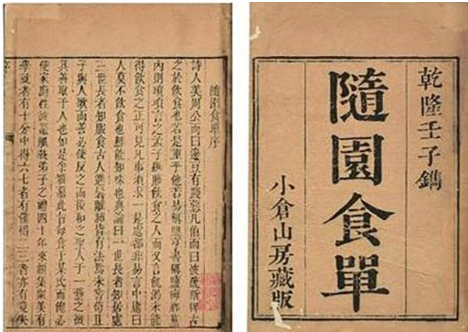 乾隆壬子鐫
隨園食單
小倉山房藏版
隨園食單序
詩人美周公而曰籩豆有踐惡凡伯而曰彼疏斯稗古
之於飲食也若是重乎他若易稱鼎亨書稱鹽梅鄉黨
內則瑣瑣言之孟子雖賤飲食之人而又言飢渴未能
得飲食之正可見凡事須求一是處都非易言中庸曰
人莫不飲食也鮮能知味也典論曰一世長者知居處
三世長者知服食古人進鬐離肺皆有法焉未嘗苟且
子與人歌而善必使反之而後和之聖人于一藝之微
其善取于人也如是余雅慕此旨每食于某氏而飽必
使家廚往彼竈觚執弟子之禮四十年來頗集衆美有
學就者有十分中得六七者有僅得二三者亦有竟失